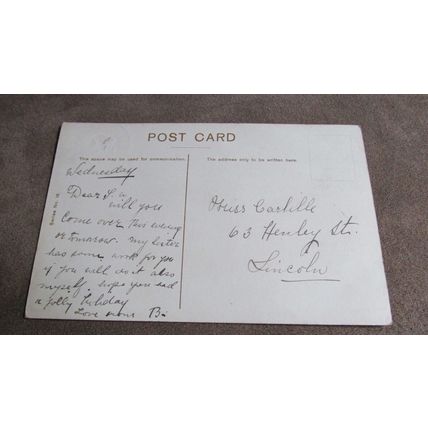 POST CARD
This space may be used for communication.
The address only to be written here.
Wednesday
Dear S.
will you
come over this evening
or tomorrow. my sister
has some work for you
if you will do it also
myself. hope you had
a jolly holiday
Love from B.
Miss Carlille
63 Henley St.
Lincoln